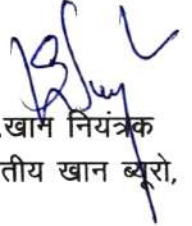 खान नियंत्रक
तीय खान ब्यूरो,